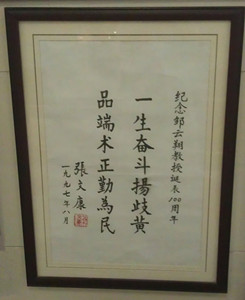 纪念邹云翔教授诞表100周年
一生奋斗揚歧黄
品端术正勤為民
張文康
一九九七年八月